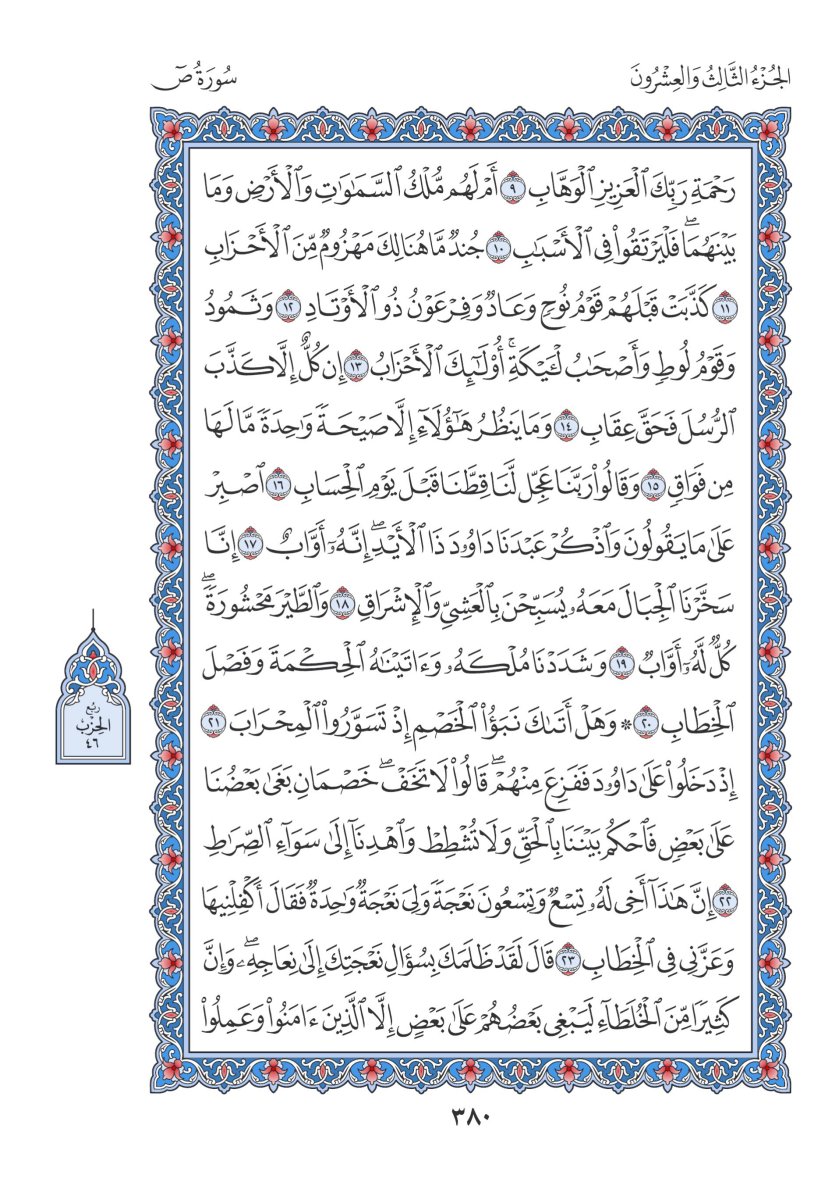 الجُزْءُ الثَّالِثُ وَالعِشْرُونَ
سُورَةُ صٓ
رَحْمَةِ رَبِّكَ ٱلْعَزِيزِ ٱلْوَهَّابِ ٩ أَمْ لَهُم مُّلْكُ ٱلسَّمَـٰوَٰتِ وَٱلْأَرْضِ وَمَا
بَيْنَهُمَاۖ فَلْيَرْتَقُوا۟ فِى ٱلْأَسْبَـٰبِ ١٠ جُندٌ مَّا هُنَالِكَ مَهْزُومٌ مِّنَ ٱلْأَحْزَابِ
١١ كَذَّبَتْ قَبْلَهُمْ قَوْمُ نُوحٍ وَعَادٌ وَفِرْعَوْنُ ذُو ٱلْأَوْتَادِ ١٢ وَثَمُودُ
وَقَوْمُ لُوطٍ وَأَصْحَـٰبُ لْـَٔيْكَةِۚ أُو۟لَـٰٓئِكَ ٱلْأَحْزَابُ ١٣ إِن كُلٌّ إِلَّا كَذَّبَ
ٱلرُّسُلَ فَحَقَّ عِقَابِ ١٤ وَمَا يَنظُرُ هَـٰٓؤُلَآءِ إِلَّا صَيْحَةً وَٰحِدَةً مَّا لَهَا
مِن فَوَاقٍ ١٥ وَقَالُوا۟ رَبَّنَا عَجِّل لَّنَا قِطَّنَا قَبْلَ يَوْمِ ٱلْحِسَابِ ١٦ ٱصْبِرْ
عَلَىٰ مَا يَقُولُونَ وَٱذْكُرْ عَبْدَنَا دَاوُۥدَ ذَا ٱلْأَيْدِۖ إِنَّهُۥٓ أَوَّابٌ ١٧ إِنَّا
سَخَّرْنَا ٱلْجِبَالَ مَعَهُۥ يُسَبِّحْنَ بِٱلْعَشِىِّ وَٱلْإِشْرَاقِ ١٨ وَٱلطَّيْرَ مَحْشُورَةًۖ
كُلٌّ لَّهُۥٓ أَوَّابٌ ١٩ وَشَدَدْنَا مُلْكَهُۥ وَءَاتَيْنَـٰهُ ٱلْحِكْمَةَ وَفَصْلَ
ٱلْخِطَابِ ٢٠ * وَهَلْ أَتَىٰكَ نَبَؤُا۟ ٱلْخَصْمِ إِذْ تَسَوَّرُوا۟ ٱلْمِحْرَابَ ٢١
إِذْ دَخَلُوا۟ عَلَىٰ دَاوُۥدَ فَفَزِعَ مِنْهُمْۖ قَالُوا۟ لَا تَخَفْۖ خَصْمَانِ بَغَىٰ بَعْضُنَا
عَلَىٰ بَعْضٍ فَٱحْكُم بَيْنَنَا بِٱلْحَقِّ وَلَا تُشْطِطْ وَٱهْدِنَآ إِلَىٰ سَوَآءِ ٱلصِّرَٰطِ
٢٢ إِنَّ هَـٰذَآ أَخِى لَهُۥ تِسْعٌ وَتِسْعُونَ نَعْجَةً وَلِىَ نَعْجَةٌ وَٰحِدَةٌ فَقَالَ أَكْفِلْنِيهَا
وَعَزَّنِى فِى ٱلْخِطَابِ ٢٣ قَالَ لَقَدْ ظَلَمَكَ بِسُؤَالِ نَعْجَتِكَ إِلَىٰ نِعَاجِهِۦۖ وَإِنَّ
كَثِيرًا مِّنَ ٱلْخُلَطَآءِ لَيَبْغِى بَعْضُهُمْ عَلَىٰ بَعْضٍ إِلَّا ٱلَّذِينَ ءَامَنُوا۟ وَعَمِلُوا۟
رُبْع
الحِزْب
٤٦
٣٨٠